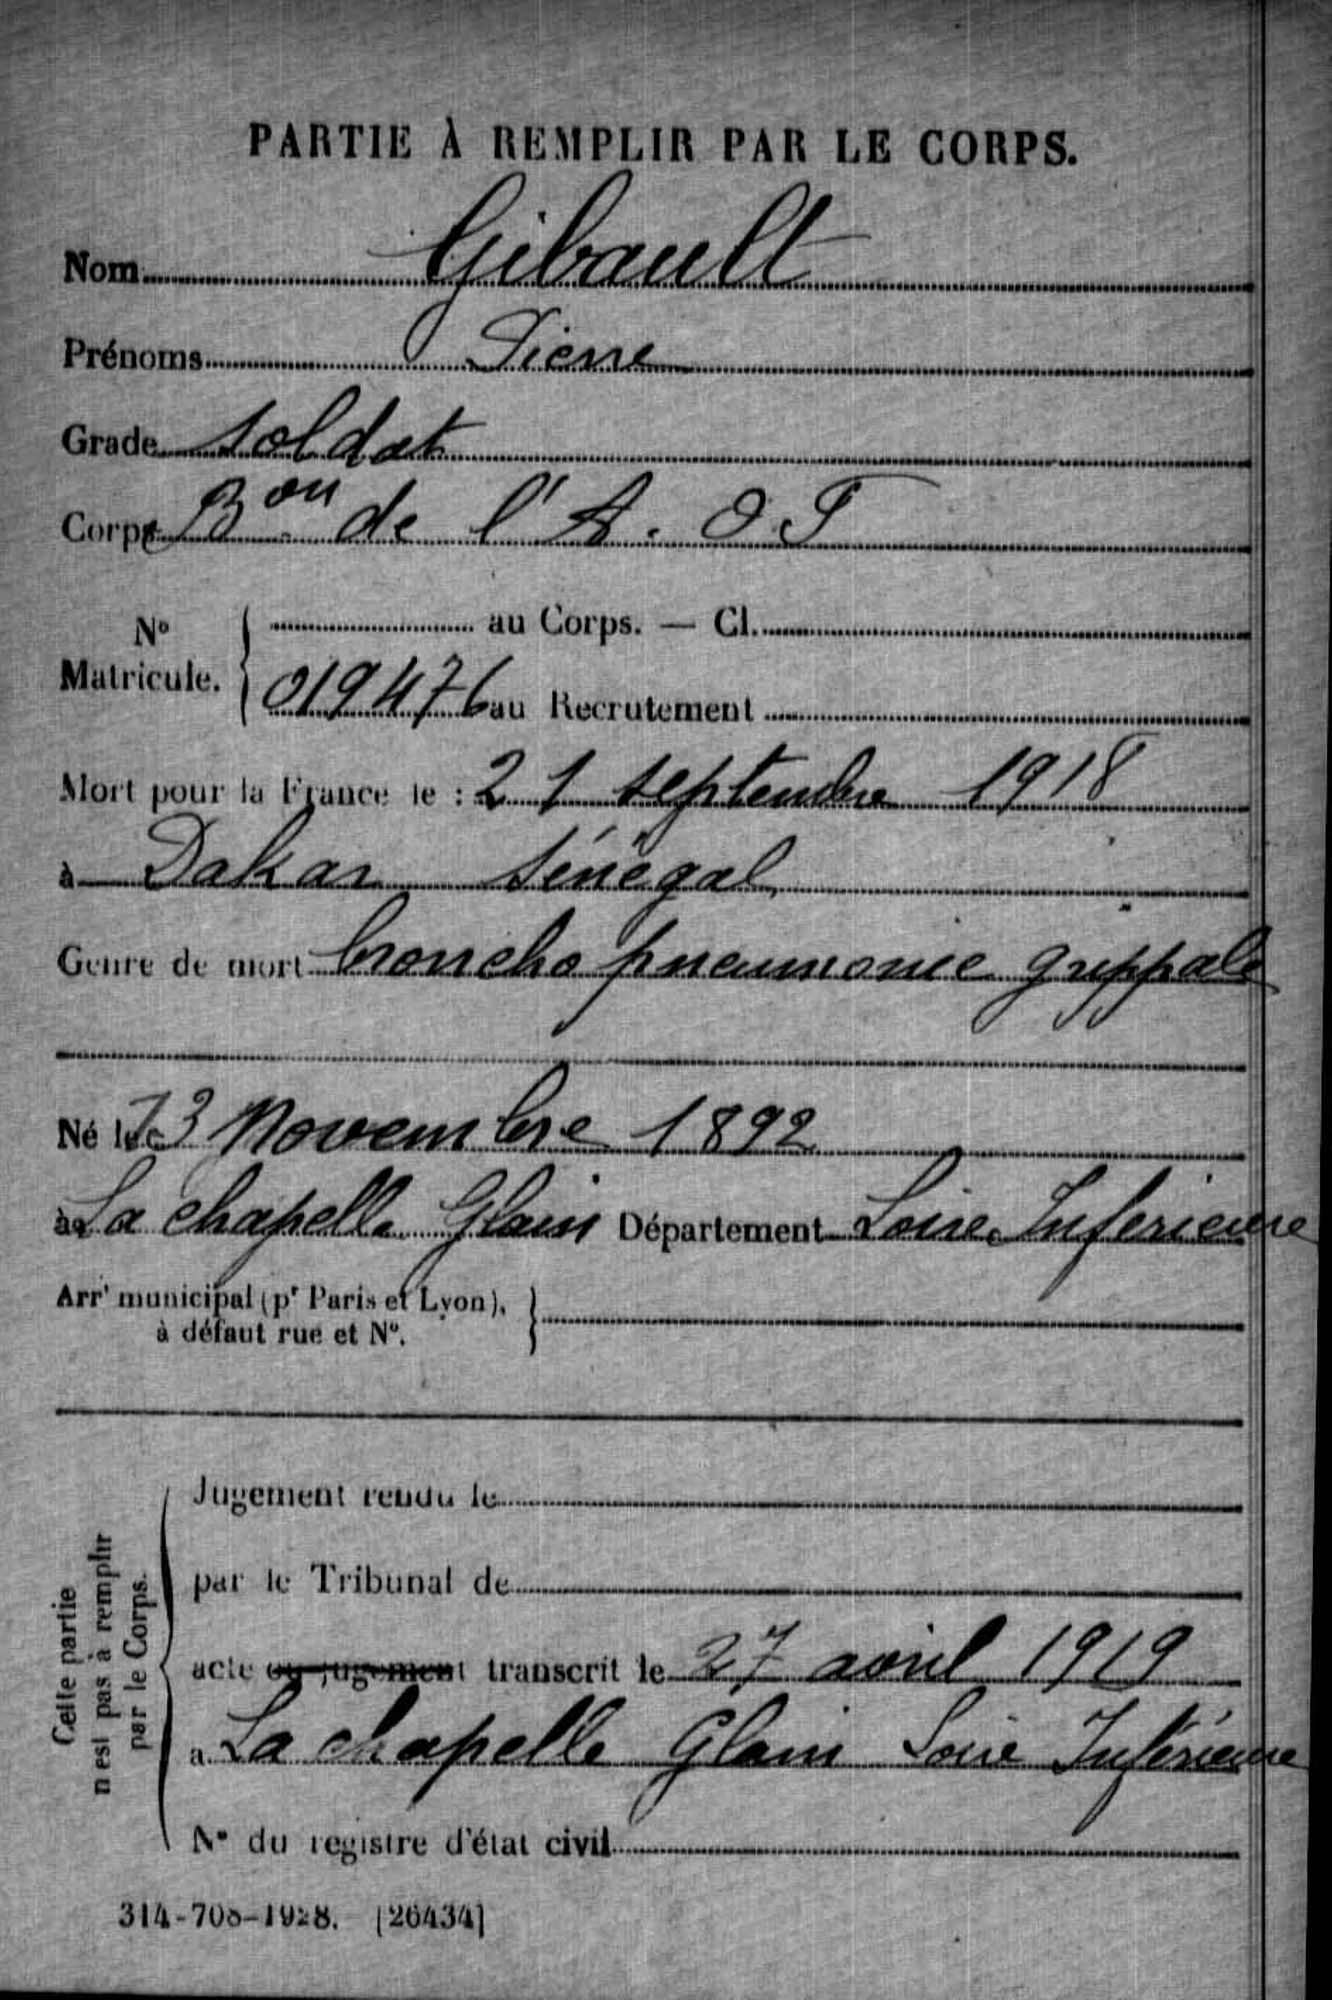 PARTIE À REMPLIR PAR LE CORPS.
Nom Gibault
Prénoms Pierre
Grade Soldat
Corps Bon de l'A. O. F
No Matricule. au Corps. — Cl.
019476 au Recrutement
Mort pour la France le : 21 septembre 1918
à Dakar Sénégal
Genre de mort broncho pneumonie grippale
Né le 13 Novembre 1892
à La chapelle Glain Département Loire Inferieure
Arrt municipal (pr Paris et Lyon),
à défaut rue et No.
Cette partie
n'est pas à remplir
par le Corps.
Jugement rendu le
par le Tribunal de
acte ou jugement transcrit le 27 avril 1919
à La chapelle Glain Loire Inférieure
No du registre d'état civil
314-708-1928. [26434]